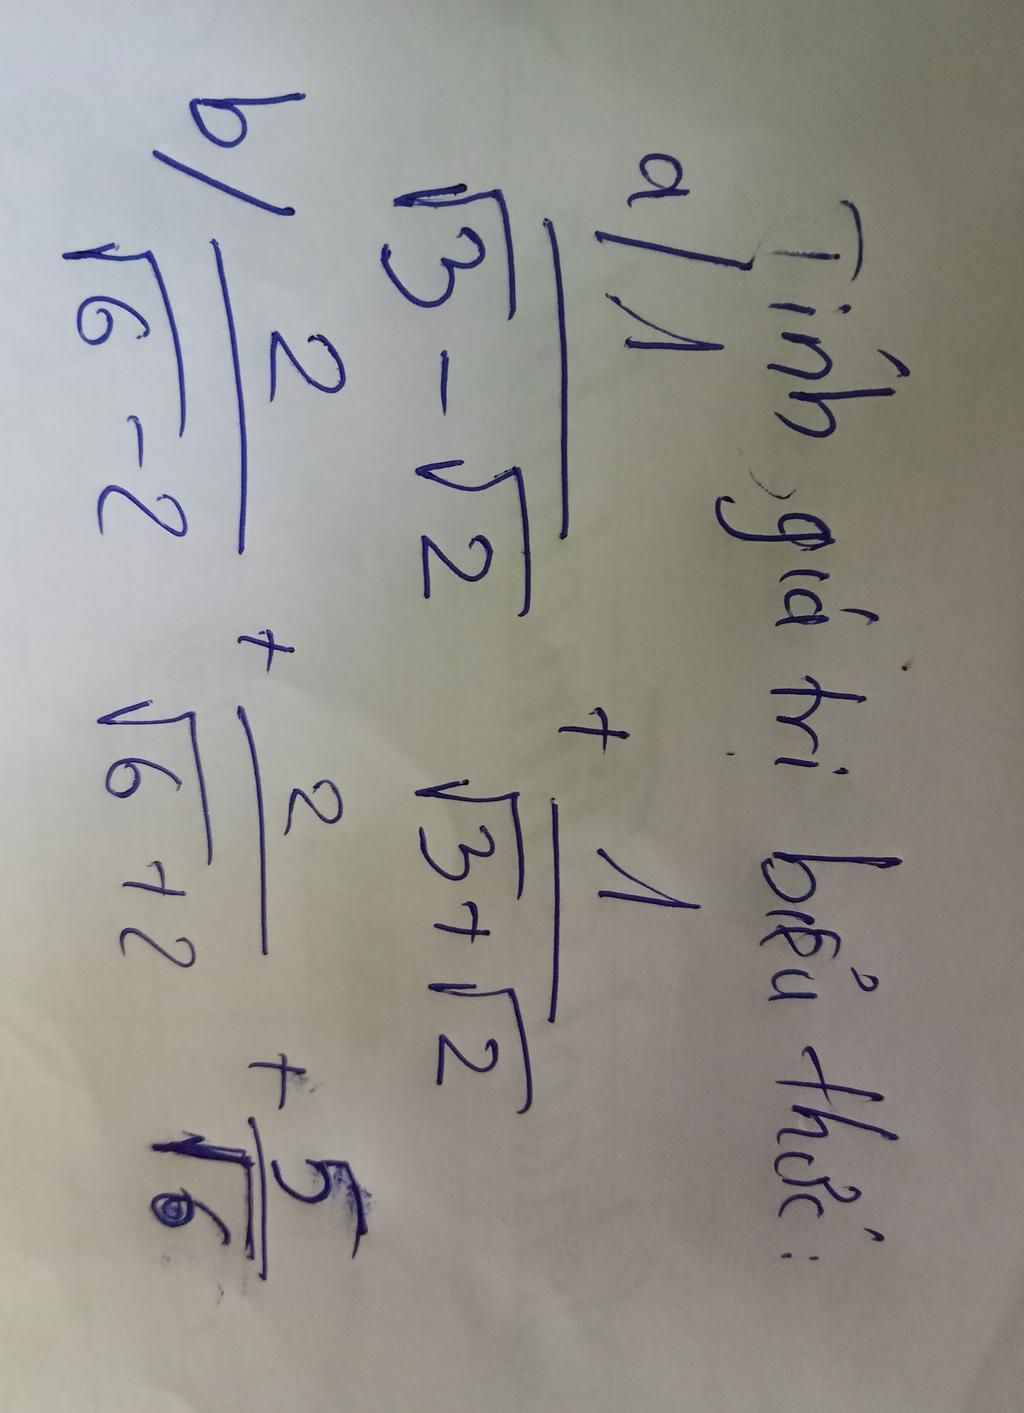 Tính giá trị biểu thức:
a/ 1/(√3 - √2) + 1/(√3 + √2)
b/ 2/(√6 - 2) + 2/(√6 + 2) + 5/√6